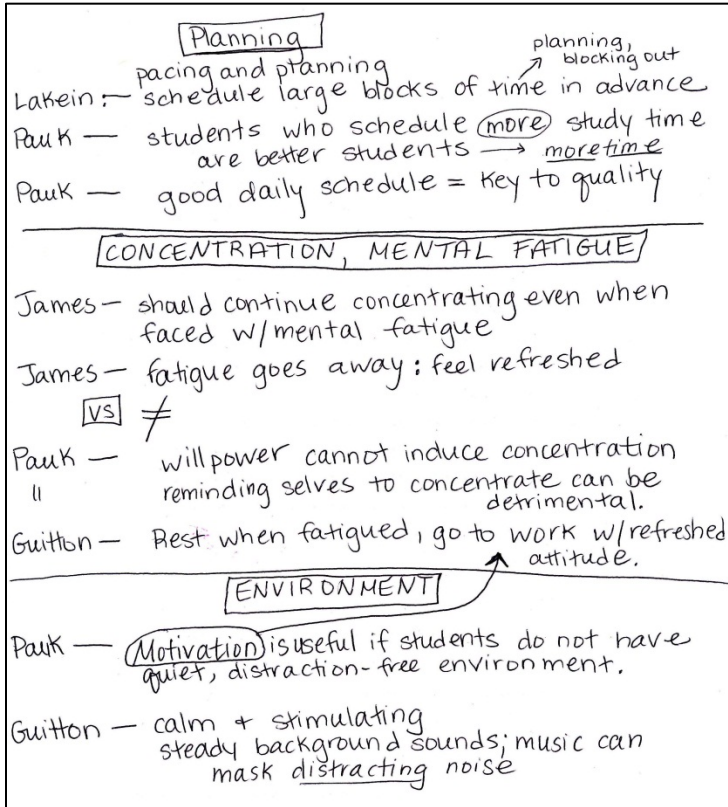 Planning
planning,
blocking out
pacing and planning
Lakein:— schedule large blocks of time in advance
Pauk — students who schedule more study time
are better students → more time
Pauk — good daily schedule = key to quality
CONCENTRATION, MENTAL FATIGUE
James — should continue concentrating even when
faced w/mental fatigue
James — fatigue goes away: feel refreshed
VS ≠
Pauk — willpower cannot induce concentration
" reminding selves to concentrate can be
detrimental.
Guitton — Rest when fatigued, go to work w/refreshed
attitude.
ENVIRONMENT
Pauk — Motivation is useful if students do not have
quiet, distraction-free environment.
Guitton — calm + stimulating
steady background sounds; music can
mask distracting noise